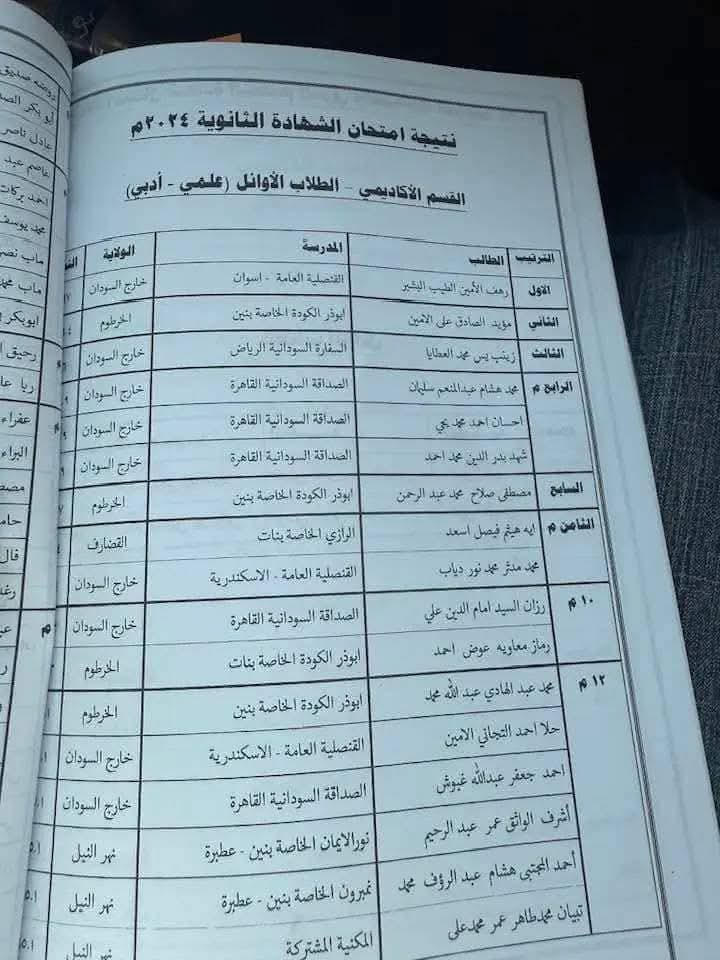 نتيجة امتحان الشهادة الثانوية ٢٠٢٤م
القسم الأكاديمي - الطلاب الأوائل (علمي - أدبي)
الترتيب الطالب المدرسة الولاية
الاول رهف الأمين الطيب البشير القنصلية العامة - اسوان خارج السودان
الثاني مؤيد الصادق على الامين ابوذر الكودة الخاصة بنين الخرطوم
الثالث زينب يس محمد العطايا السفارة السودانية الرياض خارج السودان
الرابع م محمد هشام عبدالمنعم سليمان الصداقة السودانية القاهرة خارج السودان
احسان احمد محمد يحي الصداقة السودانية القاهرة خارج السودان
شهد بدر الدين محمد احمد الصداقة السودانية القاهرة خارج السودان
السابع مصطفى صلاح محمد عبد الرحمن ابوذر الكودة الخاصة بنين الخرطوم
الثامن م ايه هيثم فيصل اسعد الرازي الخاصة بنات القضارف
محمد مدثر محمد نور دياب القنصلية العامة - الاسكندرية خارج السودان
١٠ م رزان السيد امام الدين علي الصداقة السودانية القاهرة خارج السودان
رماز معاويه عوض احمد ابوذر الكودة الخاصة بنات الخرطوم
١٢ م محمد عبد الهادي عبد الله محمد ابوذر الكودة الخاصة بنين الخرطوم
حلا احمد التجاني الامين القنصلية العامة - الاسكندرية خارج السودان
احمد جعفر عبدالله غبوش الصداقة السودانية القاهرة خارج السودان
أشرف الواثق عمر عبد الرحيم نورالايمان الخاصة بنين - عطبرة نهر النيل
أحمد المجتبى هشام عبد الرؤف محمد نمبرون الخاصة بنين - عطبرة نهر النيل
تبيان محمدطاهر عمر محمدعلى المكنية المشتركة نهر النيل